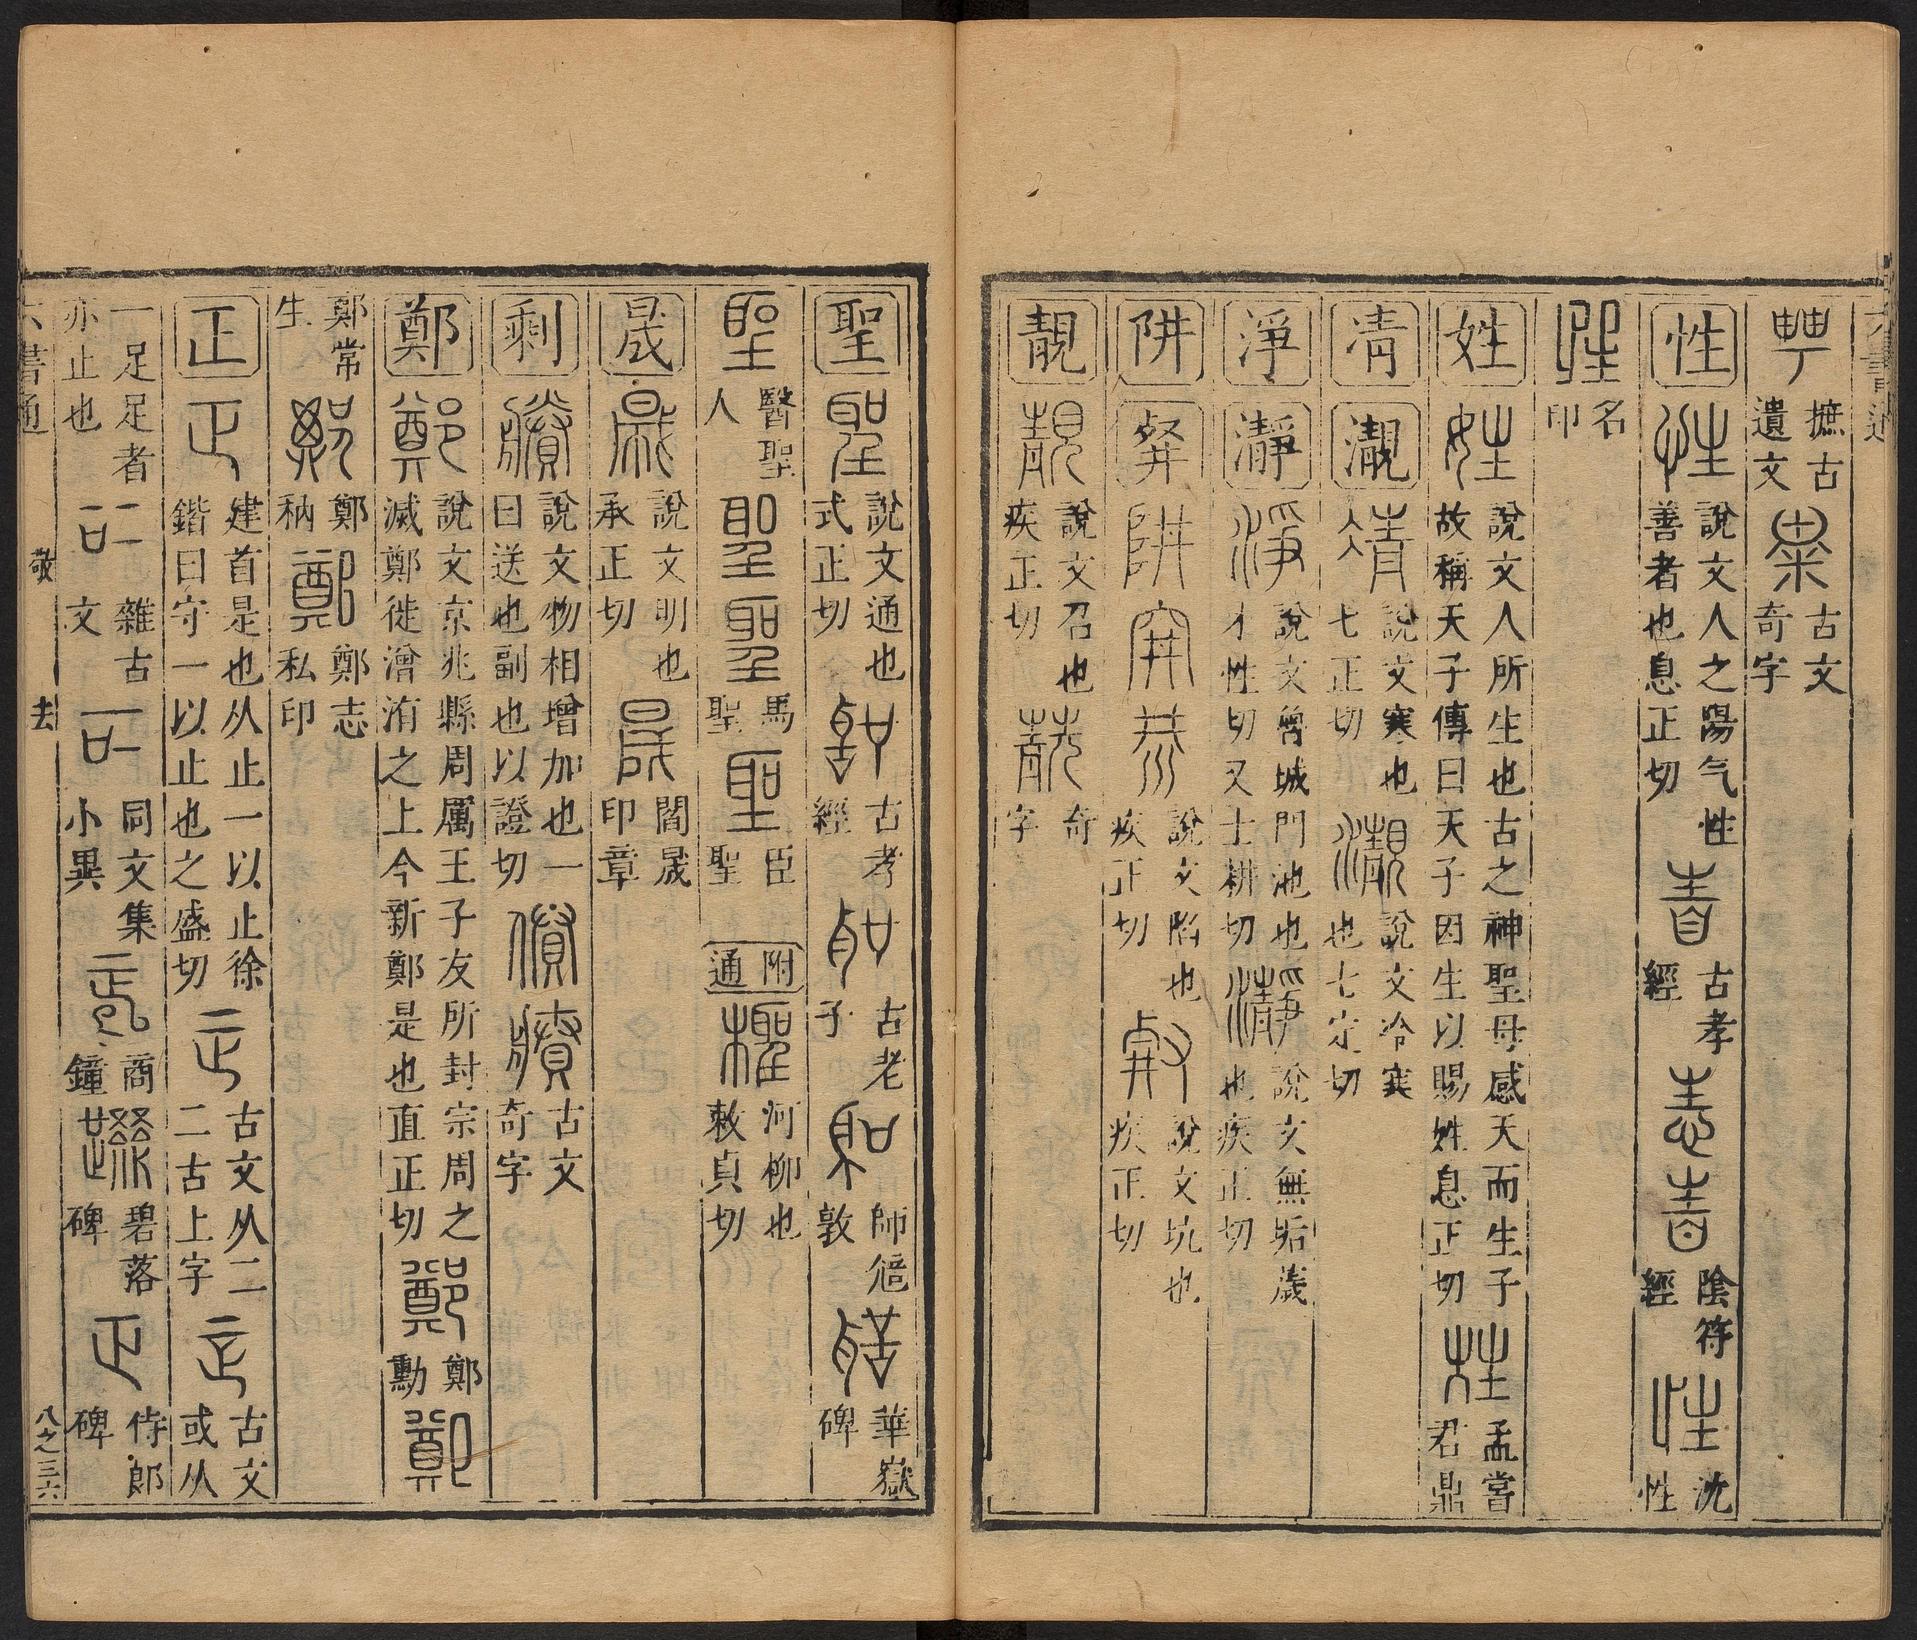 摭古遺文 古文奇字
性 說文人之陽气性善者也息正切 古孝經 陰符經 沈性
名印
姓 說文人所生也古之神聖母感天而生子故稱天子傳曰天子因生以賜姓息正切 孟嘗君鼎
凊 瀙 說文寒也七正切 說文冷寒也七定切
淨 瀞 說文魯城門池也才性切又士耕切 說文無垢薉也疾正切
阱 說文陷也疾正切 說文坑也疾正切
靚 說文召也疾正切 奇字
聖 說文通也式正切 古孝經 古老子 師㝨敦 華嶽碑
醫聖人 馬聖 臣聖 附通 檉 河柳也敕貞切
晟 說文明也承正切 閻晟印章
剩 說文物相增加也一曰送也副也以證切 古文奇字
鄭 說文京兆縣周厲王子友所封宗周之滅鄭徙潧洧之上今新鄭是也直正切 鄭勳
鄭常生 鄭䄅 鄭志私印
正 建首是也从止一以止徐鍇曰守一以止也之盛切 古文从二二古上字 古文或从
一足足者亦止也 雜古文 同文集小異 商鐘 碧落碑 侍郎碑
六書通 敬 去 八之三六